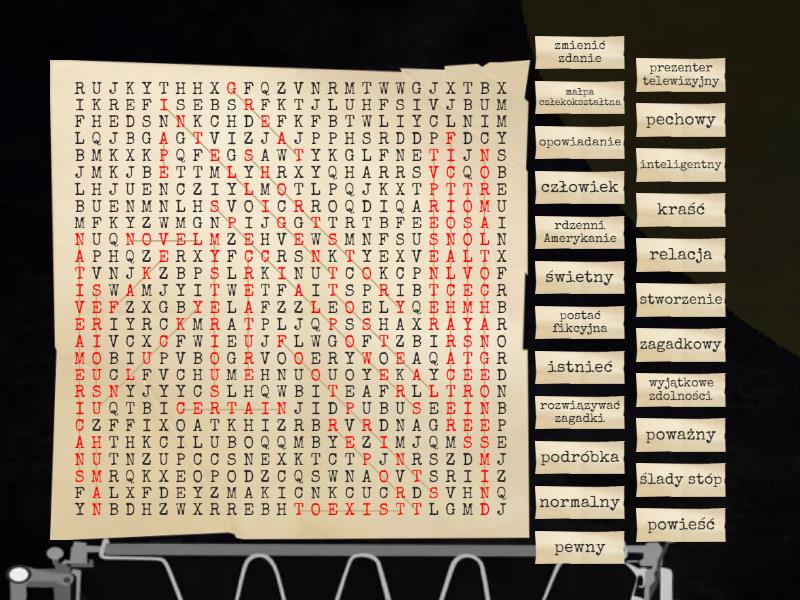 R U J K Y T H H X G F Q Z V N R M T W W G J X T B X
I K R E F I S E B S R F K T J L U H F S I V J B U M
F H E D S N N K C H D E F K F B T W L I Y C L N I M
L Q J B G A G T V I Z J A J P P H S R D D P F D C Y
B M K X K P Q F E G S A W T Y K G L F N E T I J N S
J M K J B E T T M L Y H R X Y Q H A R R S V C Q O B
L H J U E N C Z I Y L M O T L P Q J K X T P T T R E
B U E N M N L H S V O I C R R O Q D I Q A R I O M U
M F K Y Z W M G N P I J G G T T R T B F E E O S A I
N U Q N O V E L M Z E H V E W S M N F S U S N O L N
A P H Q Z E R X Y F C C R S N K T Y E X V E A L T X
T V N J K Z B P S L R K I N U T C O K C P N L V O F
I S W A M J Y I T W E T F A I T S P R I B T C E C R
V E F Z X G B Y E L A F Z Z L E O E L Y Q E H M H B
E R I Y R C K M R A T P L J Q P S S H A X R A Y A R
A I V C X C F W I E U J F L W G O F T Z B I R S N O
M O B I U P V B O G R V O O E R Y W O E A Q A T G R
E U C L F V C H U M E H N U O U O Y E K A Y C E E D
R S N Y J Y Y C S L H Q W B I T E A F R L L T R O N
I U Q T B I C E R T A I N J I D P U B U S E E I N B
C Z F F I X O A T K H I Z R B R V R D N A G R E E P
A H T H K C I L U B O Q Q M B Y E Z I M J Q M S S E
N U T N Z U P C C S N E X K T C T P J N R S Z D M J
S M R Q K X E O P O D Z C Q S W N A O V T S R I I Z
F A L X F D E Y Z M A K I C N K C U C R D S V H N Q
Y N B D H Z W X R R E B H T O E X I S T T L G M D J
zmienić
zdanie
małpa
człekokształtna
opowiadanie
człowiek
rdzenni
Amerykanie
świetny
postać
fikcyjna
istnieć
rozwiązywać
zagadki
podróbka
normalny
pewny
prezenter
telewizyjny
pechowy
inteligentny
kraść
relacja
stworzenie
zagadkowy
wyjątkowe
zdolności
poważny
ślady stóp
powieść